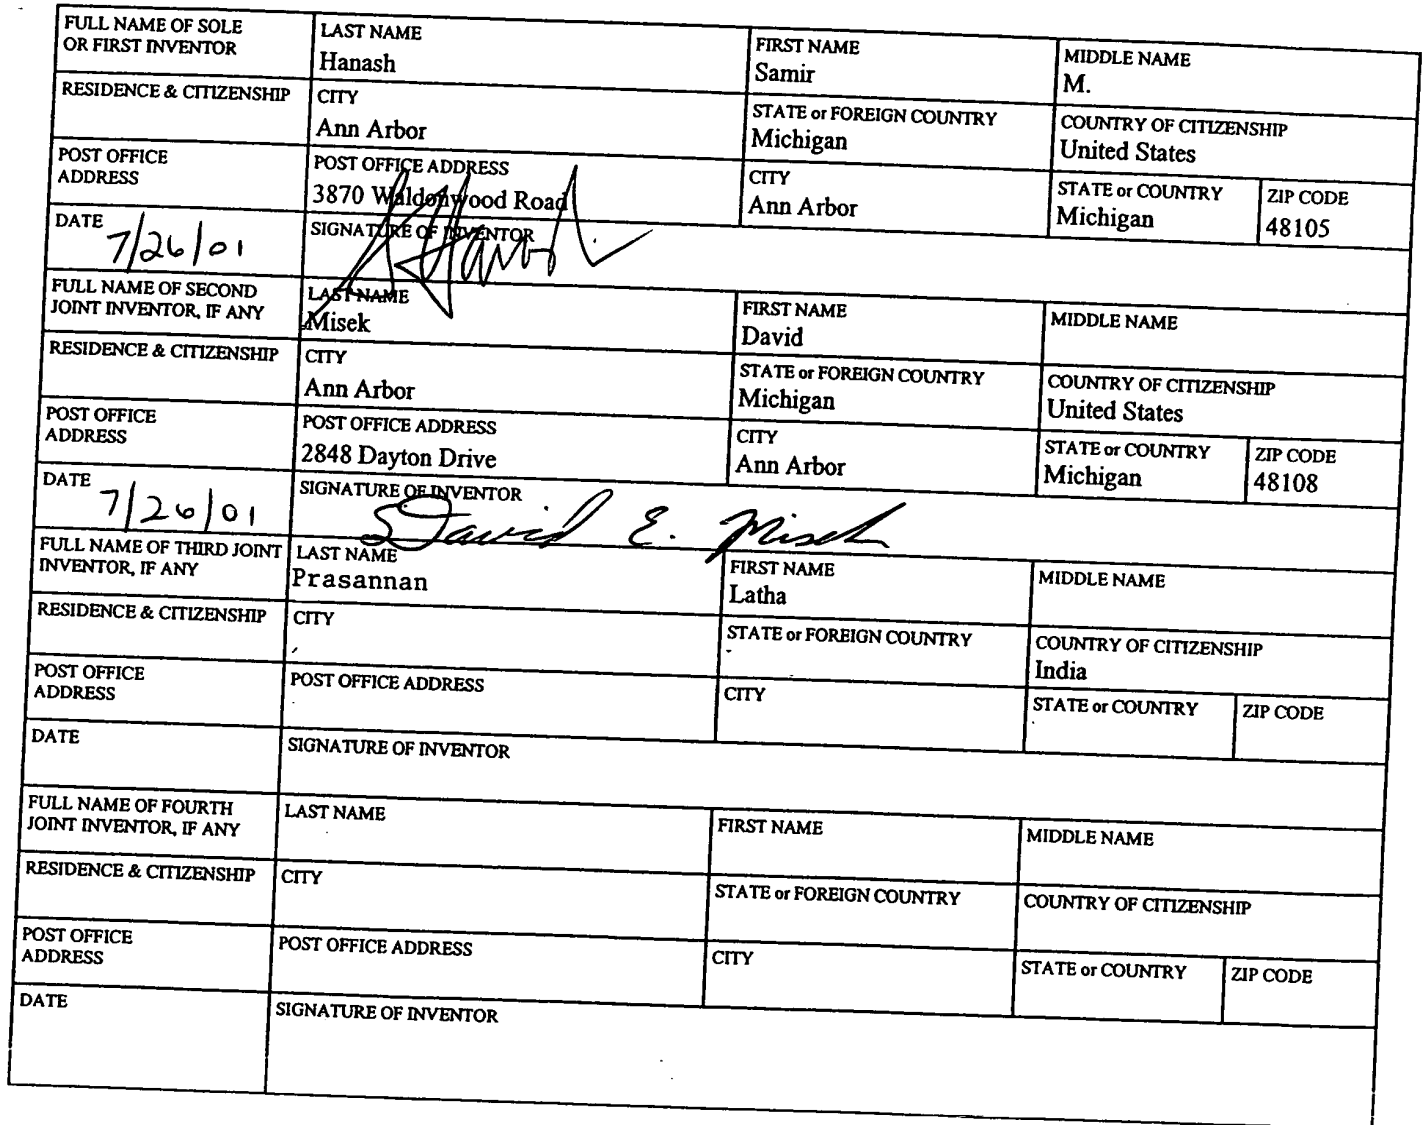 FULL NAME OF SOLE
OR FIRST INVENTOR
LAST NAME
Hanash
FIRST NAME
Samir
MIDDLE NAME
M.
RESIDENCE & CITIZENSHIP
CITY
Ann Arbor
STATE or FOREIGN COUNTRY
Michigan
COUNTRY OF CITIZENSHIP
United States
POST OFFICE
ADDRESS
POST OFFICE ADDRESS
3870 Waldonwood Road
CITY
Ann Arbor
STATE or COUNTRY
Michigan
ZIP CODE
48105
DATE
7/26/01
SIGNATURE OF INVENTOR
FULL NAME OF SECOND
JOINT INVENTOR, IF ANY
LAST NAME
Misek
FIRST NAME
David
MIDDLE NAME
RESIDENCE & CITIZENSHIP
CITY
Ann Arbor
STATE or FOREIGN COUNTRY
Michigan
COUNTRY OF CITIZENSHIP
United States
POST OFFICE
ADDRESS
POST OFFICE ADDRESS
2848 Dayton Drive
CITY
Ann Arbor
STATE or COUNTRY
Michigan
ZIP CODE
48108
DATE
7/26/01
SIGNATURE OF INVENTOR
David E. Misek
FULL NAME OF THIRD JOINT
INVENTOR, IF ANY
LAST NAME
Prasannan
FIRST NAME
Latha
MIDDLE NAME
RESIDENCE & CITIZENSHIP
CITY
STATE or FOREIGN COUNTRY
COUNTRY OF CITIZENSHIP
India
POST OFFICE
ADDRESS
POST OFFICE ADDRESS
CITY
STATE or COUNTRY
ZIP CODE
DATE
SIGNATURE OF INVENTOR
FULL NAME OF FOURTH
JOINT INVENTOR, IF ANY
LAST NAME
FIRST NAME
MIDDLE NAME
RESIDENCE & CITIZENSHIP
CITY
STATE or FOREIGN COUNTRY
COUNTRY OF CITIZENSHIP
POST OFFICE
ADDRESS
POST OFFICE ADDRESS
CITY
STATE or COUNTRY
ZIP CODE
DATE
SIGNATURE OF INVENTOR